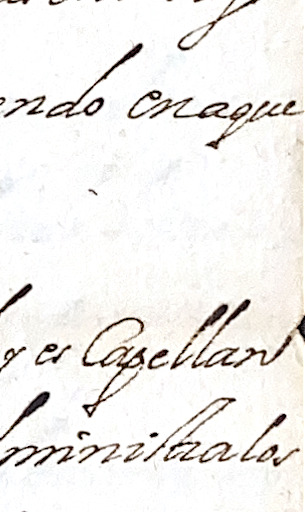 endo enaque
y es Capellan
ministralos